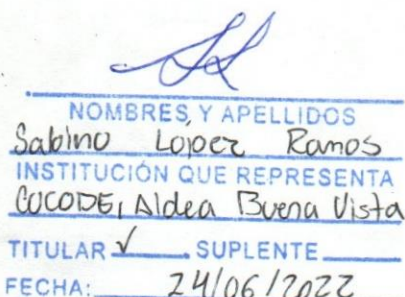 NOMBRES Y APELLIDOS
Sabino López Ramos
INSTITUCIÓN QUE REPRESENTA
COCODE, Aldea Buena Vista
TITULAR ✓ SUPLENTE
FECHA: 24/06/2022